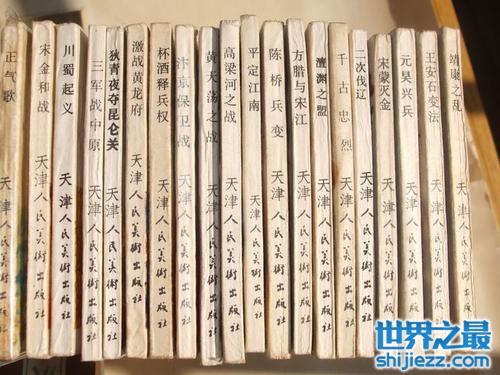 正气歌
天津人民美術出版社
宋金和战
天津人民美術出版社
川蜀起义
天津人民美術出版社
三军战中原
天津人民美術出版社
狄青夜夺昆仑关
天津人民美術出版社
激战黄龙府
天津人民美術出版社
杯酒释兵权
天津人民美術出版社
汴京保卫战
天津人民美術出版社
黄天荡之战
天津人民美術出版社
高梁河之战
天津人民美術出版社
平定江南
天津人民美術出版社
陈桥兵变
天津人民美術出版社
方腊与宋江
天津人民美術出版社
澶渊之盟
天津人民美術出版社
千古忠烈
天津人民美術出版社
二次伐辽
天津人民美術出版社
宋蒙灭金
天津人民美術出版社
元昊兴兵
天津人民美術出版社
王安石变法
天津人民美術出版社
靖康之乱
天津人民美術出版社
世界之最
shijiezz.com